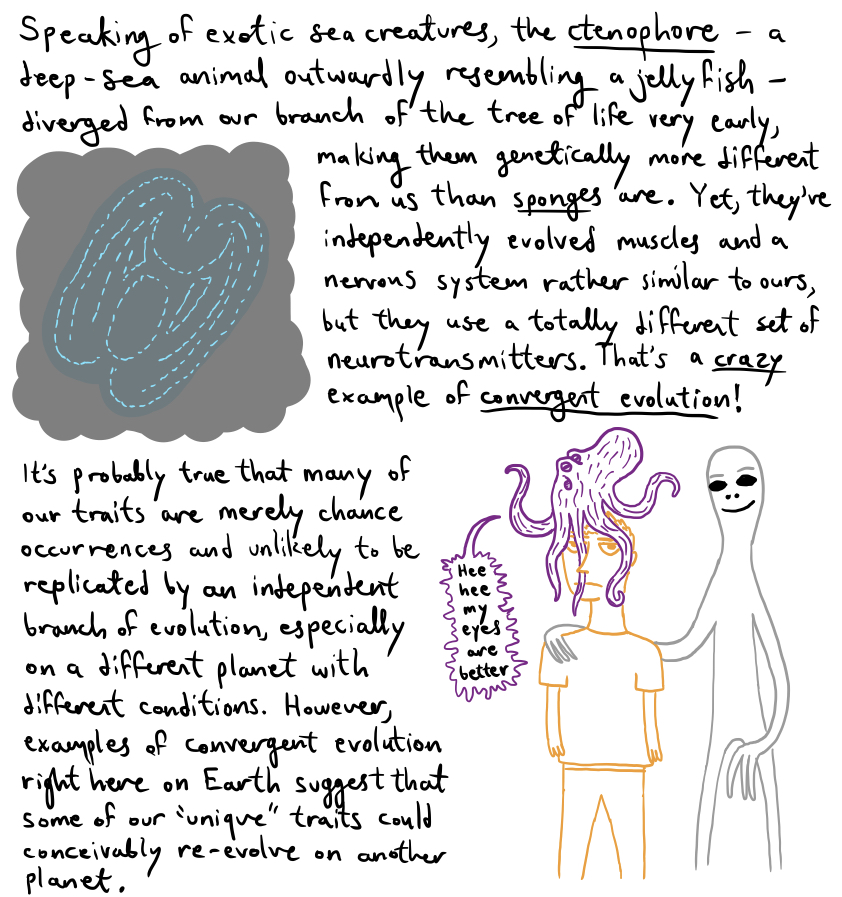 Speaking of exotic sea creatures, the ctenophore – a
deep-sea animal outwardly resembling a jellyfish –
diverged from our branch of the tree of life very early,
making them genetically more different
from us than sponges are. Yet, they've
independently evolved muscles and a
nervous system rather similar to ours,
but they use a totally different set of
neurotransmitters. That's a crazy
example of convergent evolution!
It's probably true that many of
our traits are merely chance
occurrences and unlikely to be
replicated by an independent
branch of evolution, especially
on a different planet with
different conditions. However,
examples of convergent evolution
right here on Earth suggest that
some of our "unique" traits could
conceivably re-evolve on another
planet.
Hee
hee
my
eyes
are
better